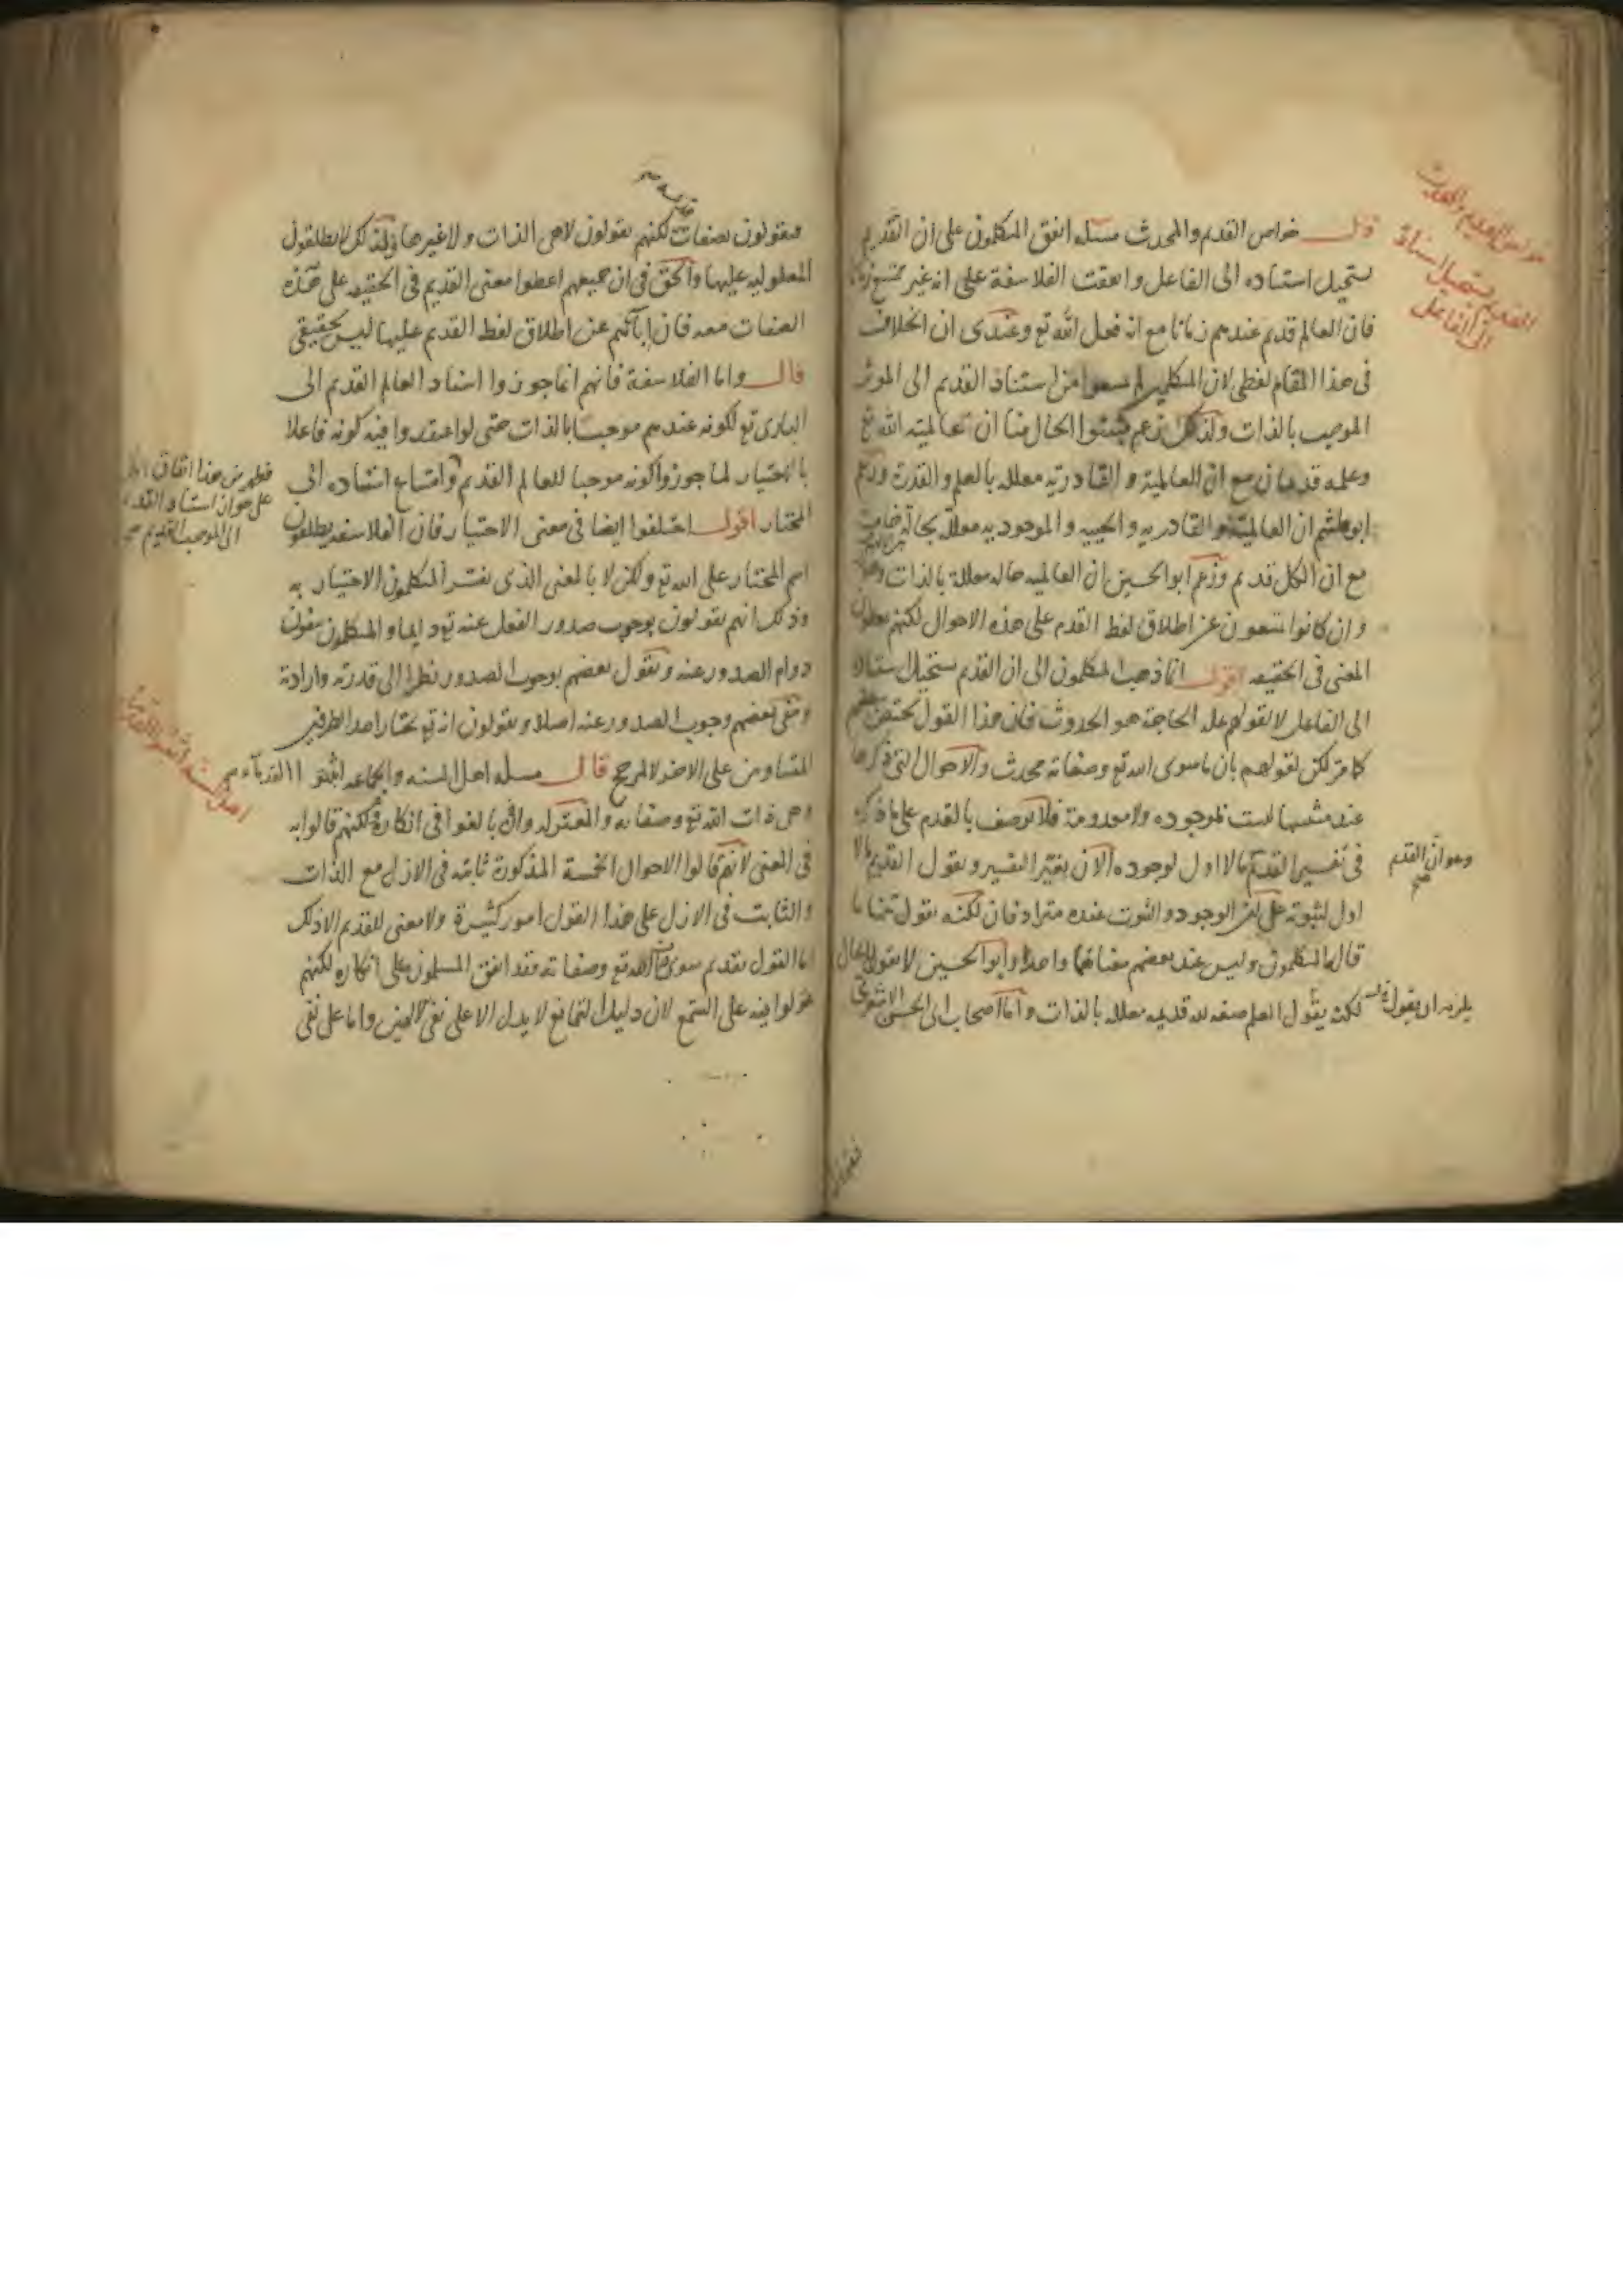 قال خواص القديم والمحدث مسئله اتفق المتكلمون على ان القديم
يستحيل استناده الى الفاعل واتفقت الفلاسفة على انه غير ممتنع زمانا
فان العالم قديم عندهم زمانا مع انه فعل الله تع وعندى ان الخلاف
فى هذا المقام لفظى لان المتكلمين لم يمنعوا من استناد القديم الى الموثر
الموجب بالذات ولذلك زعم مثبتوا الحال منا ان عالمية الله تع
وعلمه قديمان مع ان العالمية والقادرية معللة بالعلم والقدرة وزعم
ابوهاشم ان العالمية والقادريه والحييه والموجوديه معللة بحالة خامسة
مع ان الكل قديم وزعم ابو الحسين ان العالميه حاله معللة بالذات وهولاء
وان كانوا يمتنعون عن اطلاق لفظ القدم على هذه الاحوال لكنهم يعطون
المعنى فى الحقيقه اقول انما ذهب المتكلمون الى ان القديم يستحيل استناده
الى الفاعل لا لقولهم علة الحاجة هو الحدوث فان هذا القول يختص ببعضهم
كما مر لكن لقولهم بان ما سوى الله تع وصفاته محدث والاحوال التى ذكرها
عند مثبتيها ليست بموجوده ولا معدومة فلا توصف بالقدم على ما ذكره
فى تفسير القديم ما لا اول لوجوده الا ان يغير التفسير ويقول القديم ما لا
وهو ان القدم صح
اول لثبوته على ان الوجود والثبوت عنده مترادفان لكنه يقول هنا ما
قاله المتكلمون وليس عند بعضهم معناهما واحدا وابو الحسين لا يقول بالحال
لكنه يقول العلم صفة لله قديمه معللة بالذات واما اصحاب ابى الحسن الاشعرى
فيقولون
خواص القديم والمحدث
القديم يستحيل استناده
الى الفاعل
فيقولون بصفات قديمة صح لكنهم يقولون لا هى الذات ولا غيرها ولذلك لا يطلقون
المعلولية عليها والحق فى ان جميعهم اعطوا معنى القديم فى الحقيقه على هذه
الصفات معه فان اباءهم عن اطلاق لفظ القديم عليها ليس بحقيقى
قال واما الفلاسفة فانهم انما جوزوا اسناد العالم القديم الى
البارى تع لكونه عندهم موجبا بالذات حتى لو اعتقدوا فيه كونه فاعلا
بالاختيار لما جوزوا كونه موجبا للعالم القديم وامتناع استناده الى
فظهر من هذا اتفاق الكل
على جواز استناد القديم
الى الموجب القديم صح
المختار اقول اختلفوا ايضا فى معنى الاختيار فان الفلاسفه يطلقون
اسم المختار على الله تع ولكن لا بالمعنى الذى يفسر المتكلمون الاختيار به
وذلك انهم يقولون بوجوب صدور الفعل عنه تع دايما والمتكلمون ينفون
دوام الصدور عنه ويقول بعضهم بوجوب الصدور نظرا الى قدرته وارادته
ونفى بعضهم وجوب الصدور عنه اصلا ويقولون انه تع يختار احد الطرفين
المتساويين على الاخر لا لمرجح قال مسله اهل السنه والجماعه اثبتوا القدماء صح
اهل السنة اثبتوا القدماء
وهى ذات الله تع وصفاته والمعتزله وان بالغوا فى انكاره لكنهم قالوا به
فى المعنى لانهم قالوا الاحوال الخمسة المذكورة ثابته فى الازل مع الذات
والثابت فى الازل على هذا القول امور كثيرة ولا معنى للقديم الا ذلك
اما القول بقديم سوى ذات الله تع وصفاته فقد اتفق المسلمون على انكاره لكنهم
عولوا فيه على السمع لان دليل التمانع لا يدل الا على نفى الهين واما على نفى